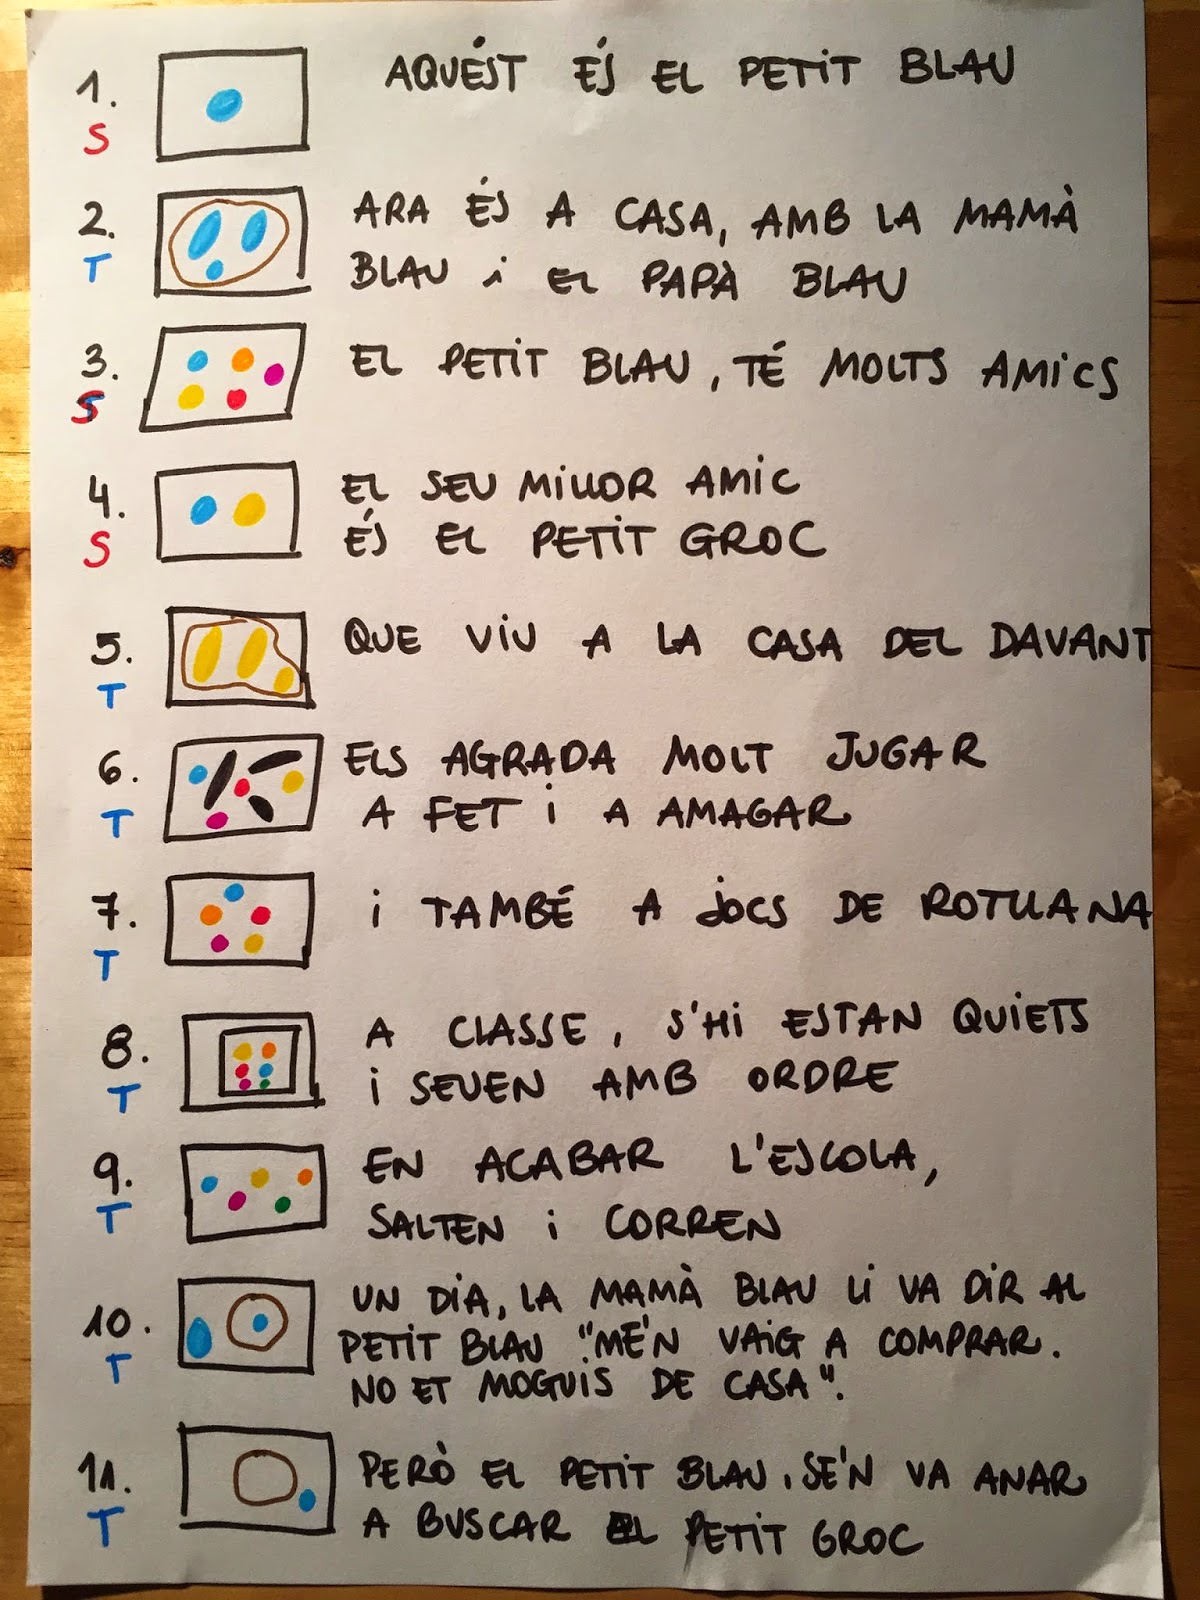 1. AQUÉST ÉS EL PETIT BLAU
S
2. ARA ÉS A CASA, AMB LA MAMÀ
T BLAU i EL PAPÀ BLAU
3. EL PETIT BLAU, TÉ MOLTS AMICS
S
4. EL SEU MILLOR AMIC
S ÉS EL PETIT GROC
5. QUE VIU A LA CASA DEL DAVANT
T
6. ELS AGRADA MOLT JUGAR
T A FET i A AMAGAR
7. i TAMBÉ A JOCS DE ROTLLANA
T
8. A CLASSE, S'HI ESTAN QUIETS
T i SEUEN AMB ORDRE
9. EN ACABAR L'ESCOLA,
T SALTEN i CORREN
10. UN DIA, LA MAMÀ BLAU LI VA DIR AL
PETIT BLAU "ME'N VAIG A COMPRAR.
T NO ET MOGUIS DE CASA".
11. PERÒ EL PETIT BLAU, SE'N VA ANAR
T A BUSCAR EL PETIT GROC